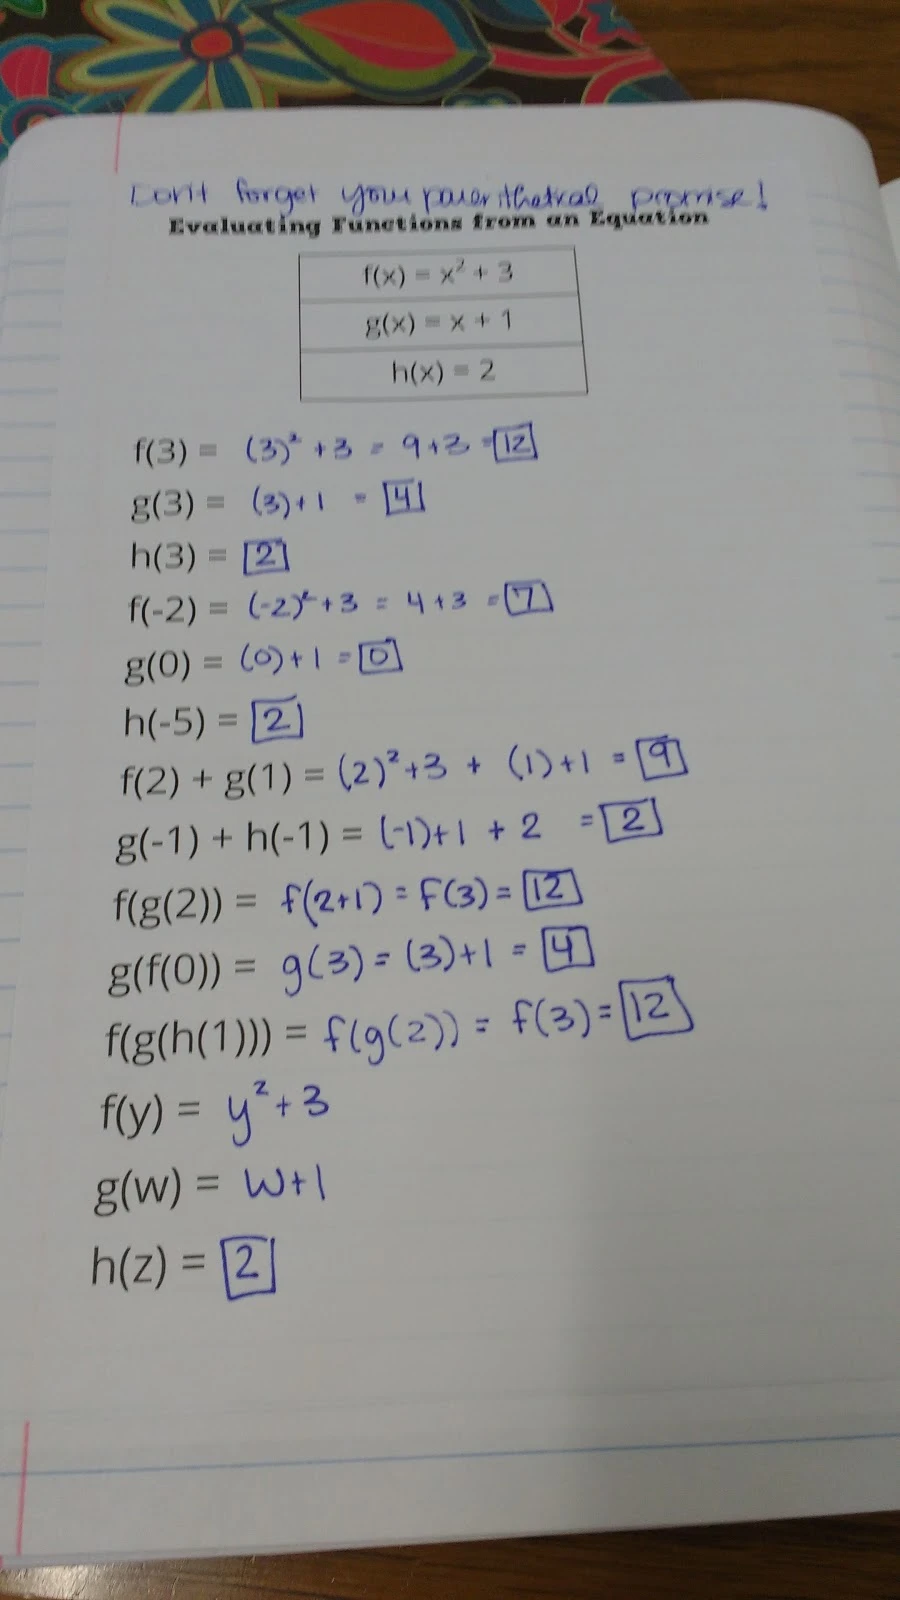 Don't forget your parenthetical promise!
Evaluating Functions from an Equation
f(x) = x² + 3
g(x) = x + 1
h(x) = 2
f(3) = (3)² + 3 = 9+3 = 12
g(3) = (3)+1 = 4
h(3) = 2
f(-2) = (-2)² + 3 = 4+3 = 7
g(0) = (0)+1 = 0
h(-5) = 2
f(2) + g(1) = (2)²+3 + (1)+1 = 9
g(-1) + h(-1) = (-1)+1 + 2 = 2
f(g(2)) = f(2+1) = F(3) = 12
g(f(0)) = g(3) = (3)+1 = 4
f(g(h(1))) = f(g(2)) = f(3) = 12
f(y) = y² + 3
g(w) = w+1
h(z) = 2